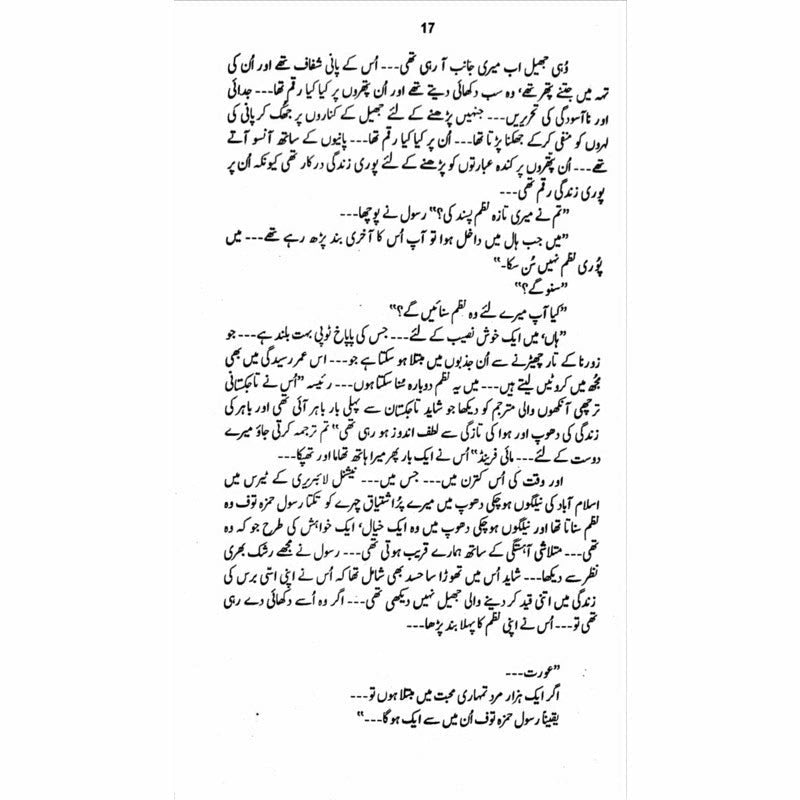 17
وُہی جھیل اب میری جانب آ رہی تھی--- اُس کے پانی شفاف تھے اور اُن کی
تہہ میں جتنے پتھر تھے، وہ سب دکھائی دیتے تھے اور اُن پتھروں پر کیا کیا رقم تھا--- جدائی
اور ناآسودگی کی تحریریں--- جنہیں پڑھنے کے لئے جھیل کے کناروں پر جھک کر پانی کی
لہروں کو منفی کرکے جھکنا پڑتا تھا--- اُن پر کیا کیا رقم تھا--- پانیوں کے ساتھ آنسو آتے
تھے--- اُن پتھروں پر کندہ عبارتوں کو پڑھنے کے لئے پوری زندگی درکار تھی کیونکہ اُن پر
پوری زندگی رقم تھی---
”تم نے میری تازہ نظم پسند کی؟“ رسول نے پوچھا---
”میں جب ہال میں داخل ہوا تو آپ اُس کا آخری بند پڑھ رہے تھے--- میں
پُوری نظم نہیں سُن سکا۔“
”سنو گے؟“
”کیا آپ میرے لئے وہ نظم سنائیں گے؟“
”ہاں، میں ایک خوش نصیب کے لئے--- جس کی پاپاخ ٹوپی بہت بلند ہے--- جو
زورنا کے تار چھیڑنے سے اُن جذبوں میں مبتلا ہو سکتا ہے جو--- اس عمر رسیدگی میں بھی
مجھ میں کروٹیں لیتے ہیں--- میں یہ نظم دوبارہ سُنا سکتا ہوں--- رئیسہ ”اُس نے تاجکستانی
ترچھی آنکھوں والی مترجم کو دیکھا جو شاید تاجکستان سے پہلی بار باہر آئی تھی اور باہر کی
زندگی کی دھوپ اور ہوا کی تازگی سے لطف اندوز ہو رہی تھی“ تم ترجمہ کرتی جاؤ میرے
دوست کے لئے--- مائی فرینڈ“ اُس نے ایک بار پھر میرا ہاتھ تھاما اور تھپکا---
اور وقت کی اُس کترن میں--- جس میں--- نیشنل لائبریری کے ٹیرس میں
اسلام آباد کی نیلگوں ہو چکی دھوپ میں میرے پُراشتیاق چہرے کو تکتا رسول حمزہ توف وہ
نظم سناتا تھا اور نیلگوں ہو چکی دھوپ میں وہ ایک خیال، ایک خواہش کی طرح جو کہ وہ
تھی--- متلاشی آہستگی کے ساتھ ہمارے قریب ہوتی تھی--- رسول نے مجھے رشک بھری
نظر سے دیکھا--- شاید اُس میں تھوڑا سا حسد بھی شامل تھا کہ اُس نے اپنی اسّی برس کی
زندگی میں اتنی قید کر دینے والی جھیل نہیں دیکھی تھی--- اگر وہ اُسے دکھائی دے رہی
تھی تو--- اُس نے اپنی نظم کا پہلا بند پڑھا---
”عورت---
اگر ایک ہزار مرد تمہاری محبت میں مبتلا ہوں تو---
یقیناً رسول حمزہ توف اُن میں سے ایک ہو گا---“